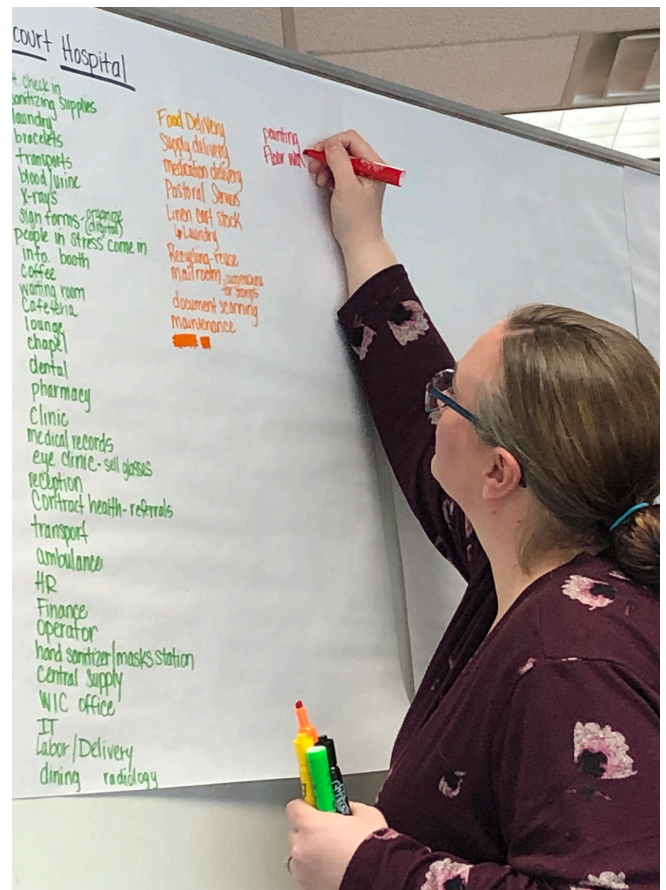 court Hospital
check in
sanitizing supplies
laundry
bracelets
transports
blood/urine
x-rays
sign forms - organize
(digital)
people in stress come in
info booth
coffee
waiting room
Cafeteria
lounge
chapel
dental
pharmacy
clinic
medical records
eye clinic - sell glasses
reception
Contract health - referrals
transport
ambulance
HR
Finance
Operator
hand sanitizer/masks station
Central Supply
WIC office
IT
Labor/Delivery
dining radiology
Food Delivery
Supply delivery
medication delivery
Pastoral Services
Linen cart stock
↳ Laundry
Recycling - reuse
mailroom
for stamps
document scanning
maintenance
painting
floor